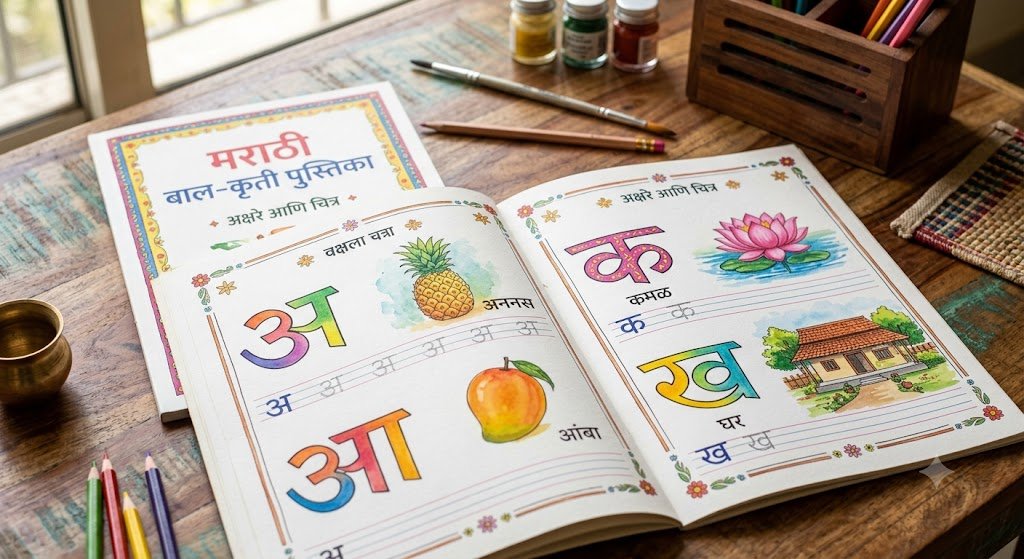 मराठी
बाल-कृती पुस्तिका
अक्षरे आणि चित्र
वक्षला चत्रा
अ
अननस
अ अ अ अ अ अ
आ
आंबा
अ
अक्षरे आणि चित्र
क
कमळ
क क
ख
घर
ख ख